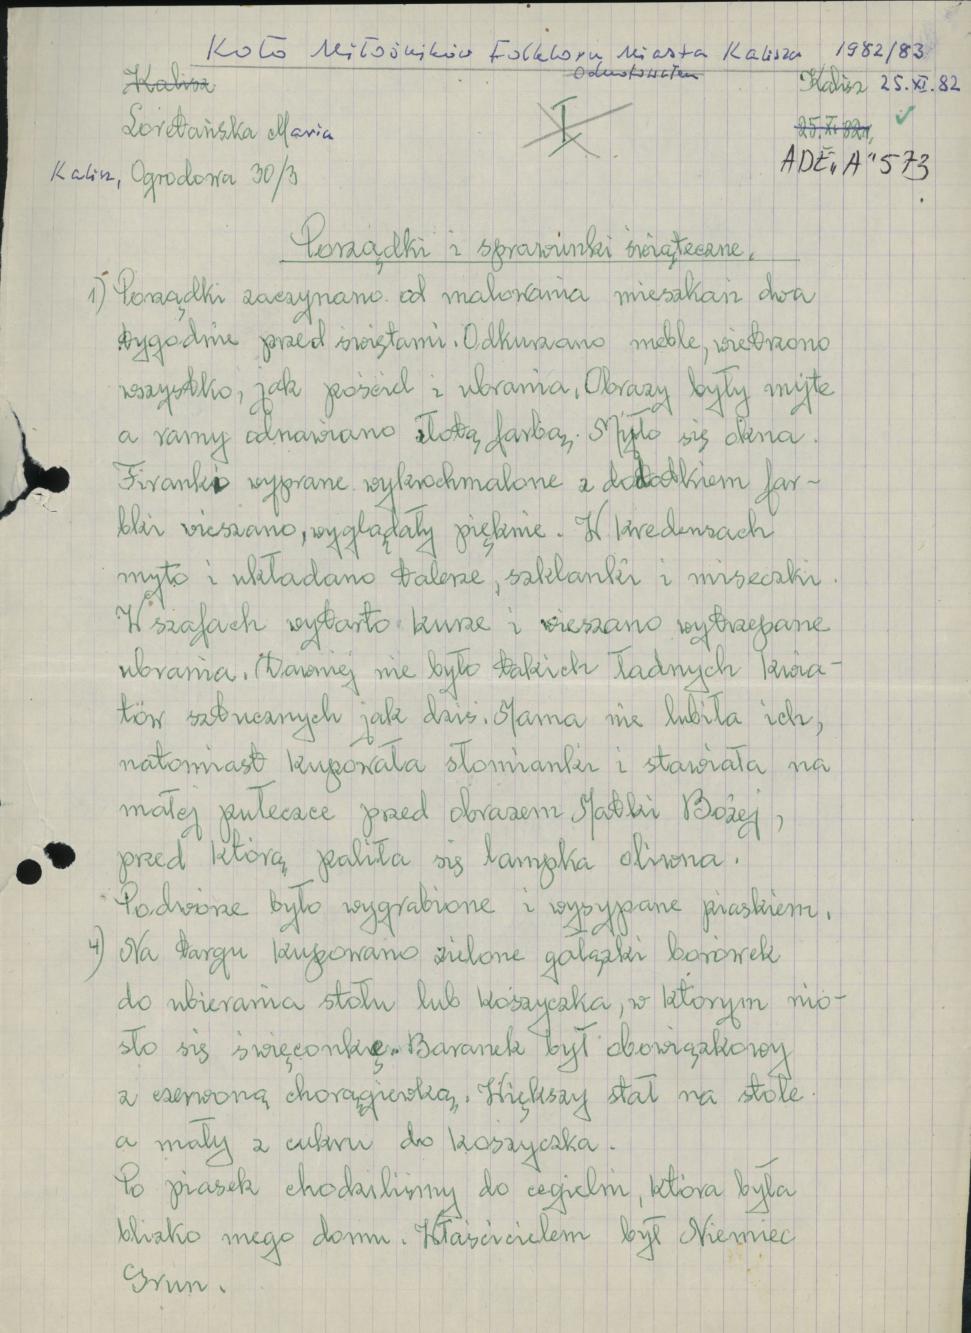 Koło Miłośników Folkloru Miasta Kalisza 1982/83
Kalisz
Kalisz 25.XI.82
I
Loretańska Maria
25.XI.82r,
Kalisz, Ogrodowa 30/3
ADŁ "A" 573
Porządki i sprawunki świąteczne.
1) Porządki zaczynano od malowania mieszkań dwa
tygodnie przed świętami. Odkurzano meble, wietrzono
wszystko, jak pościel i ubrania. Obrazy były myte
a ramy odnawiano złotą farbą. Myło się okna.
Firanki wyprane wykrochmalone z dodatkiem far-
bki wieszano, wyglądały pięknie. W kredensach
myto i układano talerze, szklanki i miseczki.
W szafach wytarto kurze i wieszano wytrzepane
ubrania. Dawniej nie było takich ładnych kwia-
tów sztucznych jak dziś. Mama nie lubiła ich,
natomiast kupowała słomianki i stawiała na
małej półeczce przed obrazem Matki Bożej,
przed którą paliła się lampka oliwna.
Podwórze było wygrabione i wysypane piaskiem.
4) Na targu kupowano zielone gałązki borówek
do ubierania stołu lub koszyczka, w którym nio-
sło się święconkę. Baranek był obowiązkowy
z czerwoną chorągiewką. Większy stał na stole
a mały z cukru do koszyczka.
Po piasek chodziliśmy do cegielni, która była
blizko mego domu. Właścicielem był Niemiec
Grun.